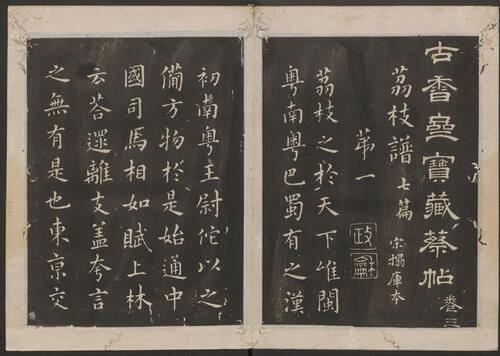 古香齋寶藏蔡帖 卷三
茘枝譜 七篇 宋搨庫本
苐一
政龢
茘枝之於天下唯閩
粵南粵巴蜀有之漢
初南粵王尉佗以之
備方物於是始通中
國司馬相如賦上林
云荅遝離支盖夸言
之無有是也東京交